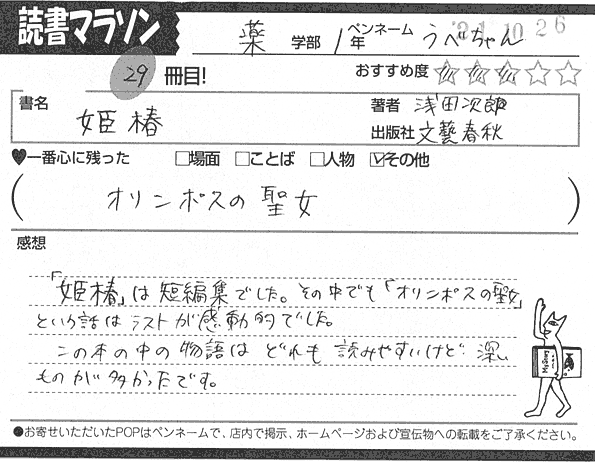 読書マラソン
薬 学部 1年 ペンネーム うべちゃん
'21 10 26
29 冊目! おすすめ度 ★★★☆☆
書名 姫椿
著者 浅田次郎
出版社 文藝春秋
♥一番心に残った □場面 □ことば □人物 ☑その他
(オリンポスの聖女)
感想
「姫椿」は短編集でした。その中でも「オリンポスの聖女」
という話はラストが感動的でした。
この本の中の物語はどれも読みやすいけど深い
ものが多かったです。
●お寄せいただいたPOPはペンネームで、店内で掲示、ホームページおよび宣伝物への転載をご了承ください。